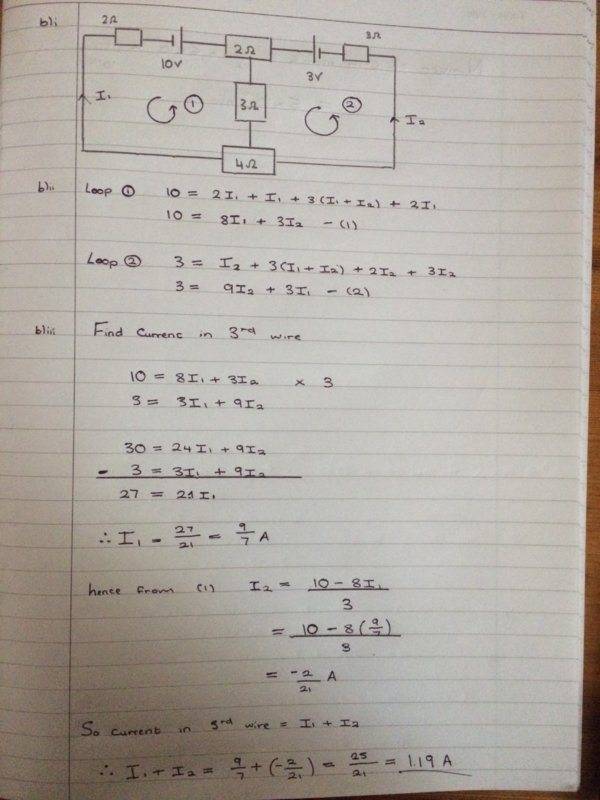 b)i
2Ω 10V 2Ω 3V 3Ω
I₁ ① 3Ω ② I₂
4Ω
b)ii Loop ① 10 = 2I₁ + I₁ + 3(I₁ + I₂) + 2I₁
10 = 8I₁ + 3I₂ - (1)
Loop ② 3 = I₂ + 3(I₁ + I₂) + 2I₂ + 3I₂
3 = 9I₂ + 3I₁ - (2)
b)iii Find current in 3rd wire
10 = 8I₁ + 3I₂ × 3
3 = 3I₁ + 9I₂
30 = 24I₁ + 9I₂
- 3 = 3I₁ + 9I₂
27 = 21I₁
∴ I₁ = 27/21 = 9/7 A
hence from (1) I₂ = (10 - 8I₁)/3
= (10 - 8(9/7))/3
= -2/21 A
So current in 3rd wire = I₁ + I₂
∴ I₁ + I₂ = 9/7 + (-2/21) = 25/21 = 1.19 A